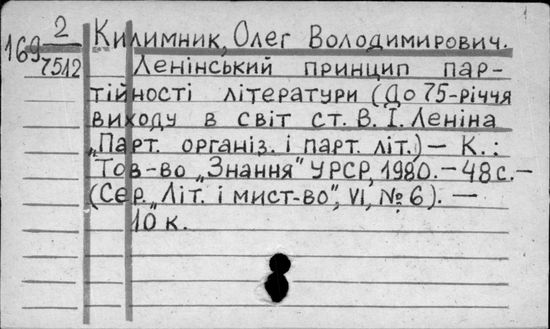 169 2/7512
Килимник, Олег Володимирович.
Ленінський принцип пар-
тійності літератури (До 75-річчя
виходу в світ ст. В. І. Леніна
„Парт. організ. і парт. літ.) — К.:
Тов-во „Знання" УРСР, 1980. — 48 с. —
(Сер. „Літ. і мист-во", VI, № 6). —
10 к.